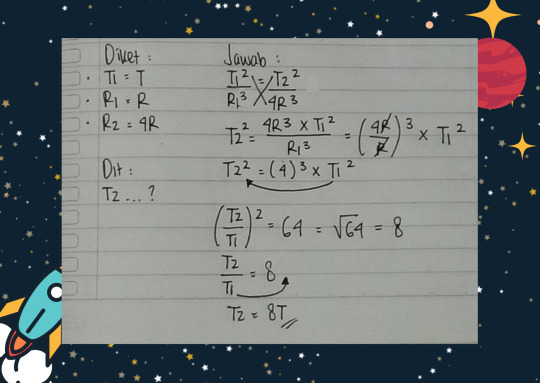 Diket :
• T1 = T
• R1 = R
• R2 = 4R
Dit :
T2 ... ?
Jawab :
T1² / R1³ = T2² / 4R³
T2² = 4R³ × T1² / R1³ = (4R / R)³ × T1²
T2² = (4)³ × T1²
(T2 / T1)² = 64 = √64 = 8
T2 / T1 = 8
T2 = 8T